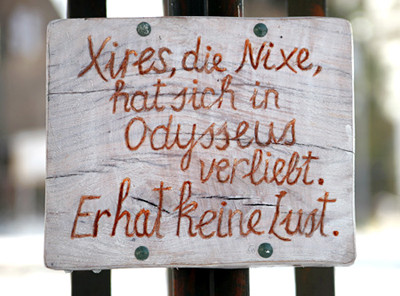 Xires, die Nixe,
hat sich in
Odysseus
verliebt.
Er hat keine Lust.